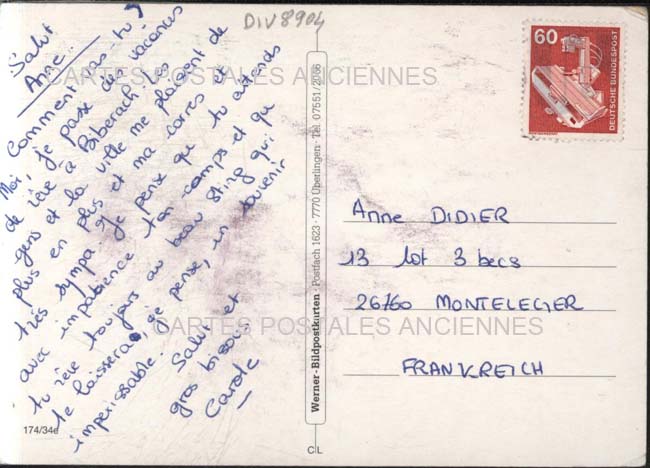 DIV8904
Salut
Anne.
Comment vas tu?
Moi, je passe des vacances
de rêve à Biberach. Les
gens et la ville me plaisent de
plus en plus et ma corres est
très sympa. Je pense que tu attends
avec impatience ton camps et que
tu rêve toujours au beau Sting qui
te laissera, je pense, un souvenir
impérissable.
Salut et
gros bisous
Carole
174/34e
CL
Werner-Bildpostkarten · Postfach 1623 · 7770 Überlingen · Tel. 07551/2066
60
DEUTSCHE BUNDESPOST
Anne DIDIER
13 lot 3 becs
26760 MONTELEGER
FRANKREICH
CARTES POSTALES ANCIENNES
CARTES POSTALES ANCIENNES